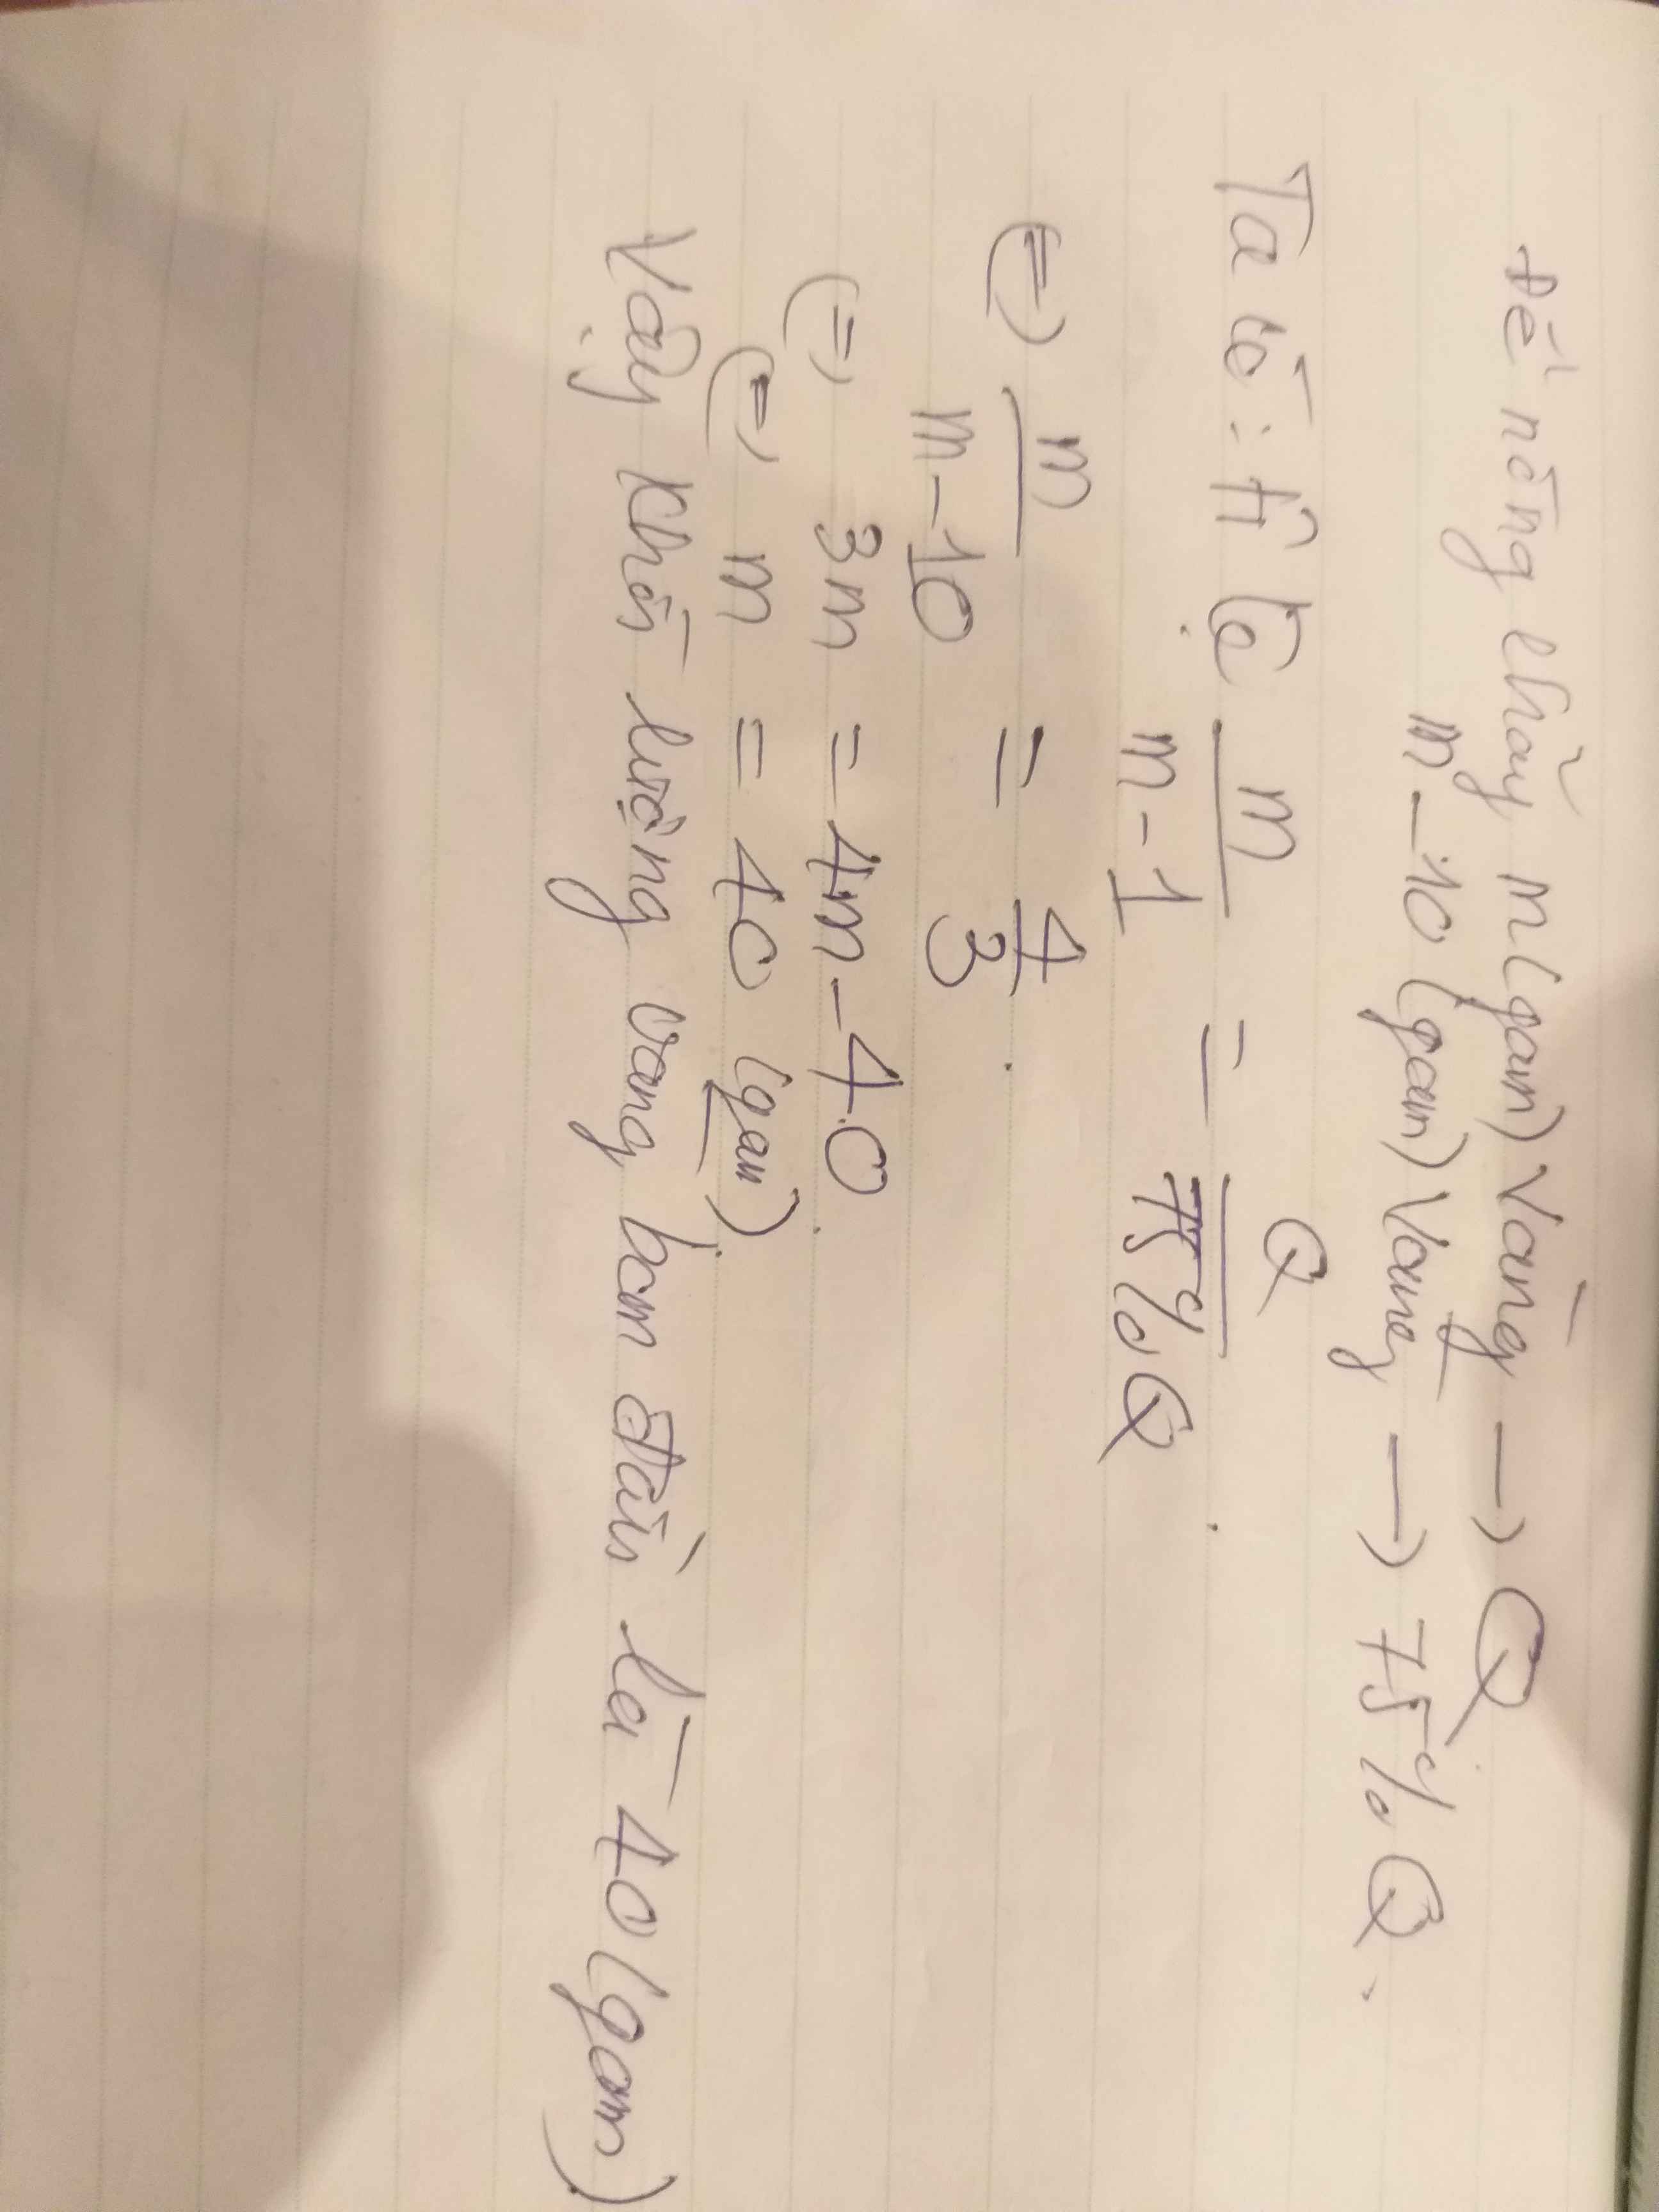 Để nóng chảy m(gam) Vàng → Q
m-10 (gam) Vàng → 75% Q.
Ta có: tỉ lệ m/m-1 = Q/75%Q
(=) m/m-10 = 4/3
(=) 3m = 4m-40
(=) m = 40 (gam).
Vậy khối lượng vàng ban đầu là 40(gam)